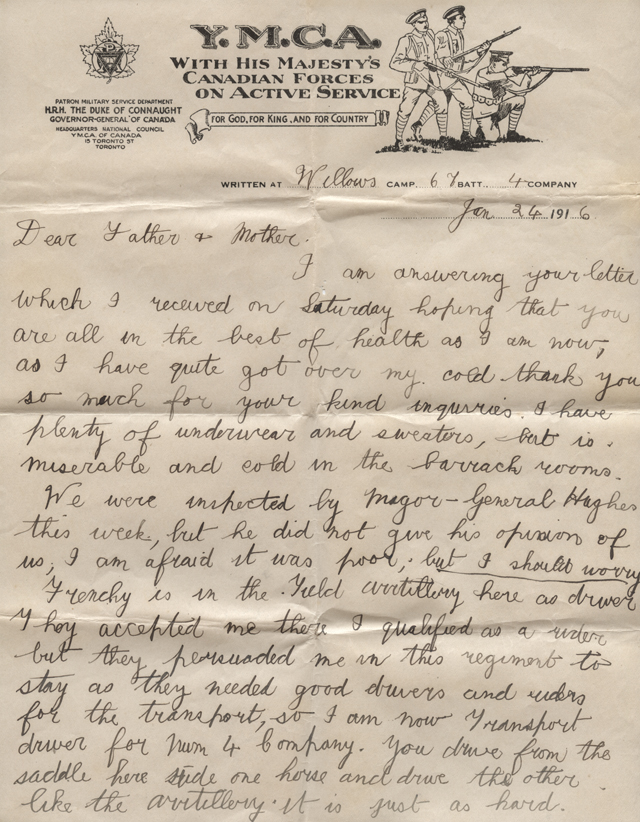 Y.M.C.A.
WITH HIS MAJESTY'S
CANADIAN FORCES
ON ACTIVE SERVICE
FOR GOD, FOR KING, AND FOR COUNTRY
PATRON MILITARY SERVICE DEPARTMENT
H.R.H. THE DUKE OF CONNAUGHT
GOVERNOR-GENERAL OF CANADA
HEADQUARTERS NATIONAL COUNCIL
Y.M.C.A. OF CANADA
15 TORONTO ST
TORONTO
WRITTEN AT Willows CAMP. 67 BATT. 4 COMPANY
Jan 24 1916.
Dear Father & Mother.
I am answering your letter
which I received on Saturday hoping that you
are all in the best of health as I am now,
as I have quite got over my cold thank you
so much for your kind inqurries. I have
plenty of underwear and sweaters, but is
miserable and cold in the barrack rooms.
We were inspected by Magor-General Hughes
this week, but he did not give his opinion of
us, I am afraid it was poor, but I should worry
Frenchy is in the Field artillery here as driver
They accepted me there I qualified as a rider
but they persuaded me in this regiment to
stay as they needed good drivers and riders
for the transport, so I am now Transport
driver for Num 4 Company. You drive from the
saddle here ride one horse and drive the other
like the artillery. it is just as hard.